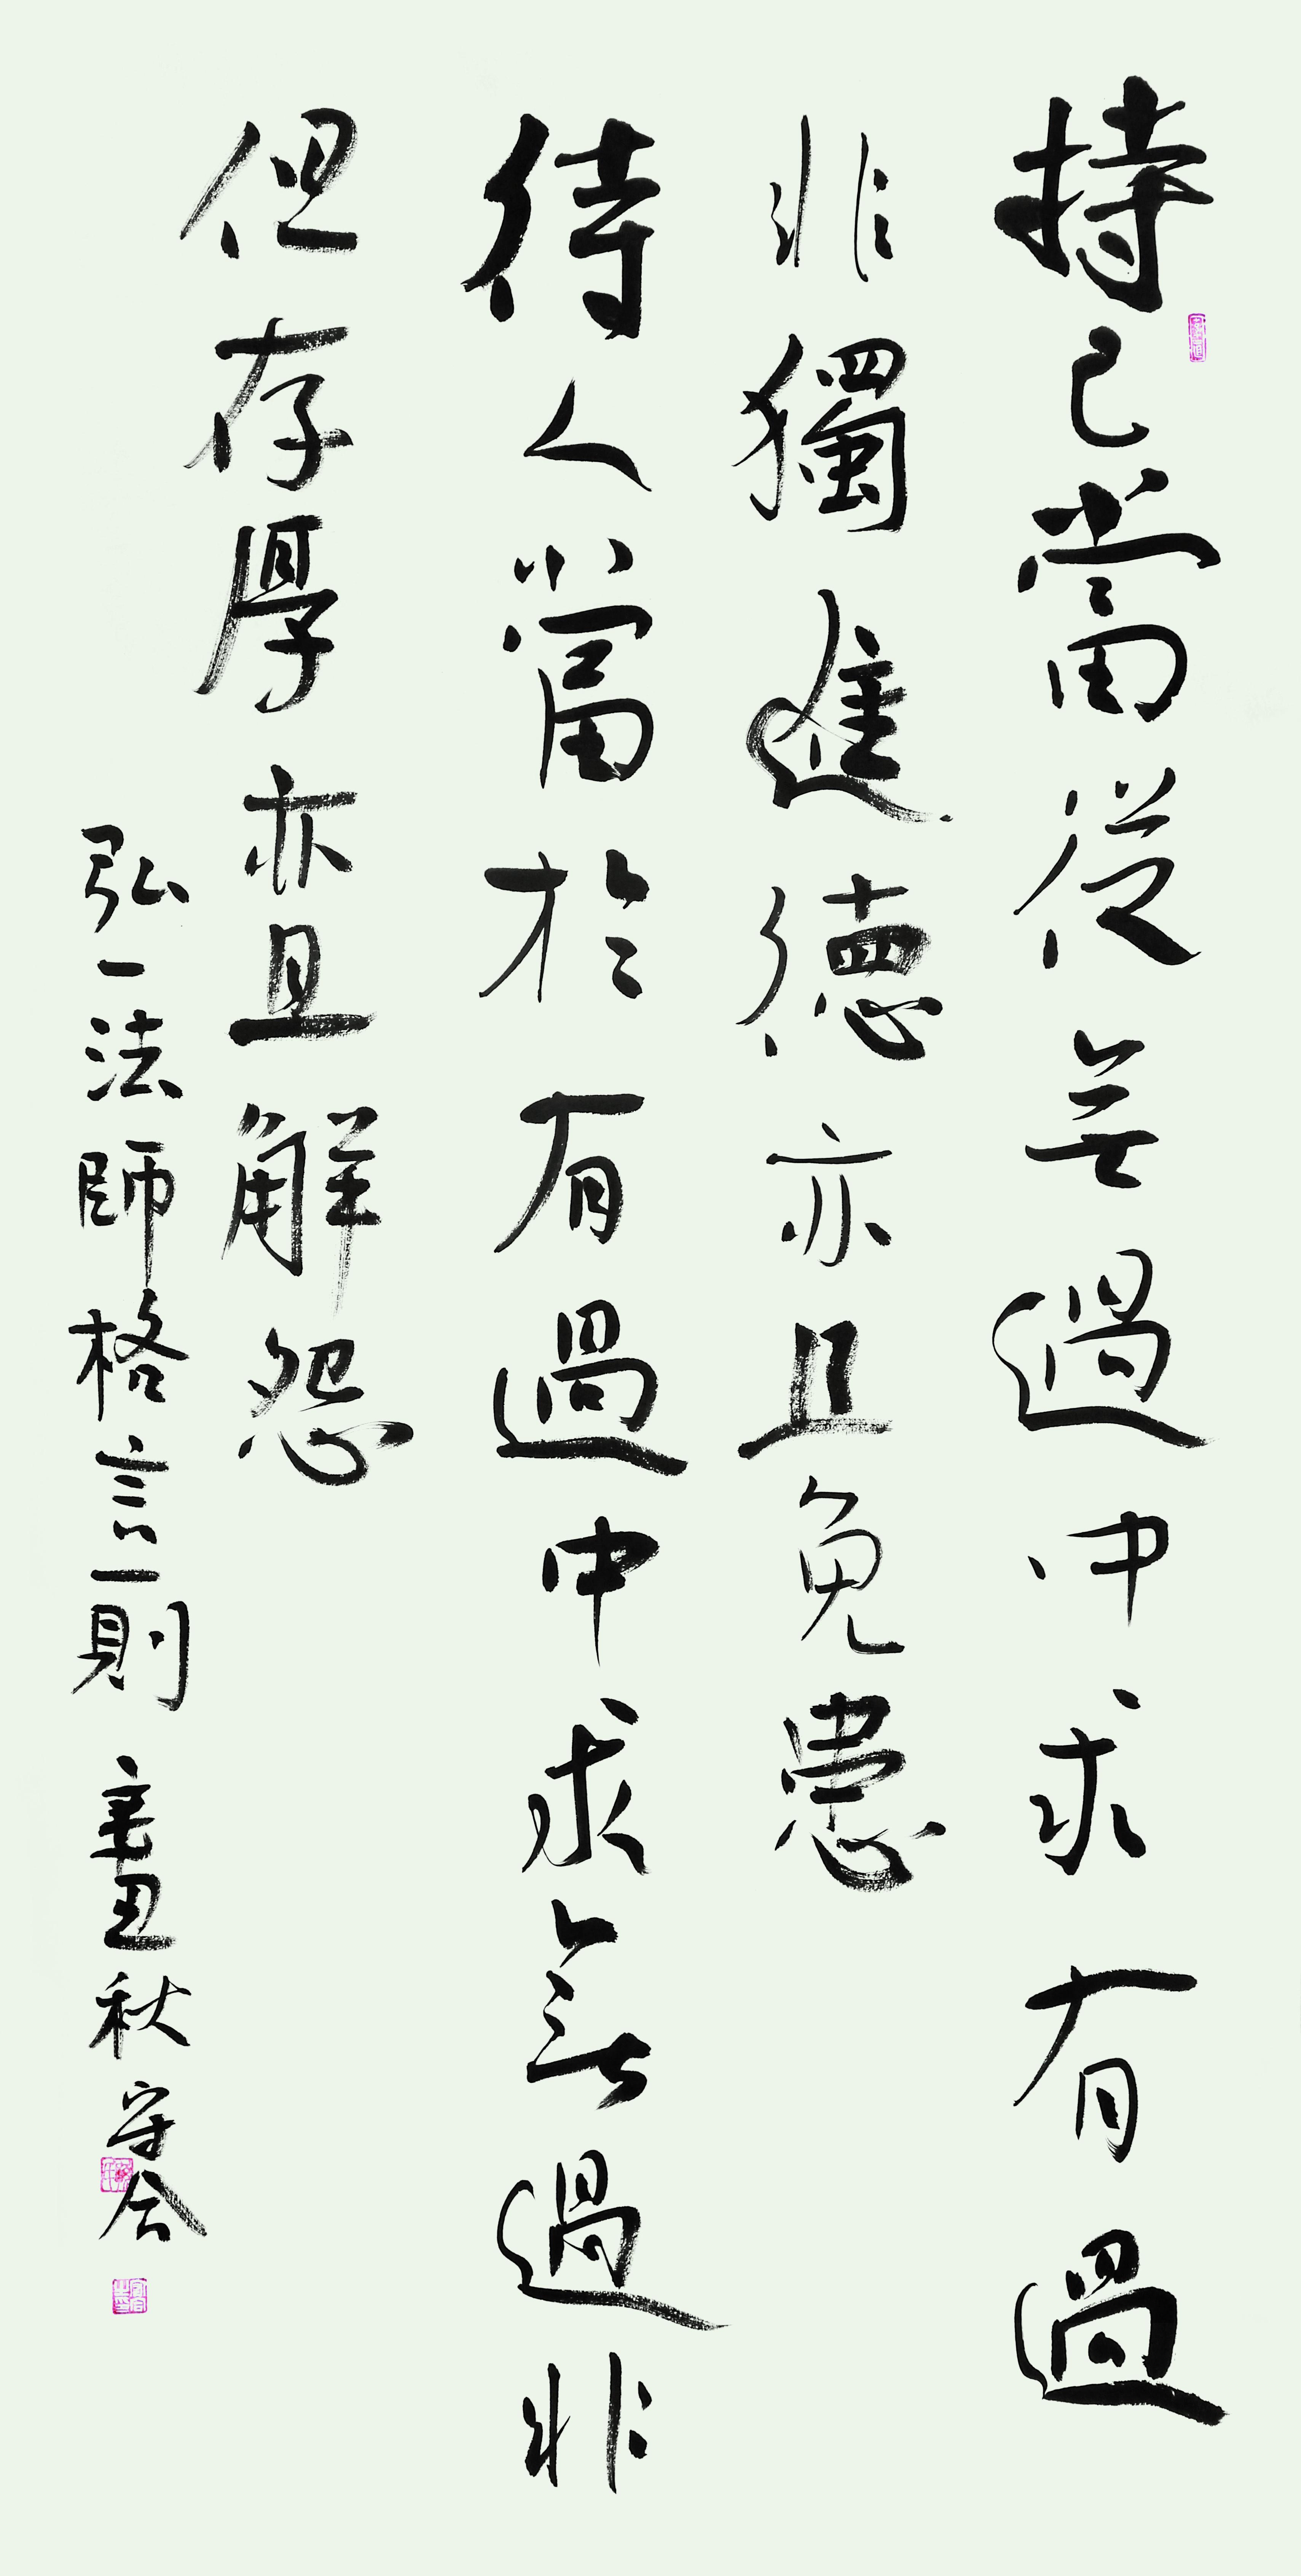 持己當從無過中求有過
非獨進德亦且免患
待人當於有過中求無過非
但存厚亦且解怨
弘一法師格言一則 辛丑秋 守合